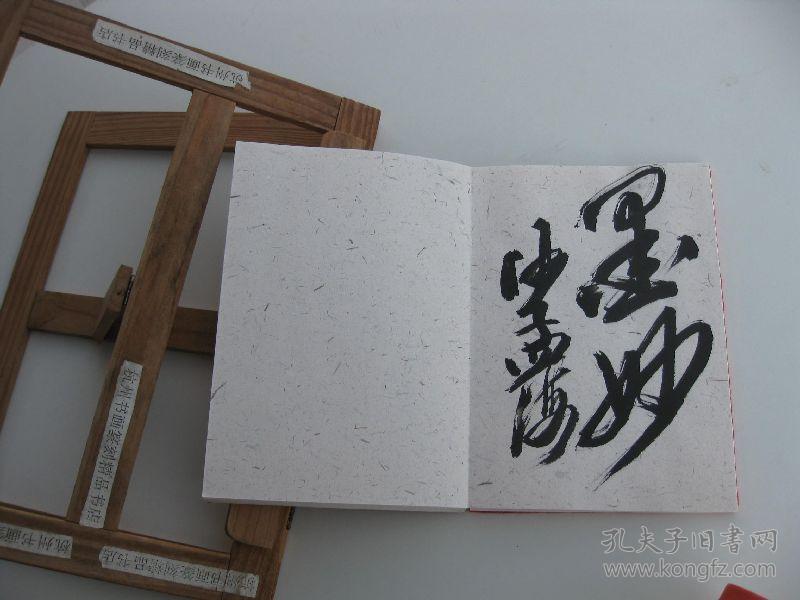 杭州书画篆刻精品书店
墨妙
杭州书画篆刻精品书店
杭州书画篆
书画篆刻精品书店
孔夫子旧书网
www.kongfz.com